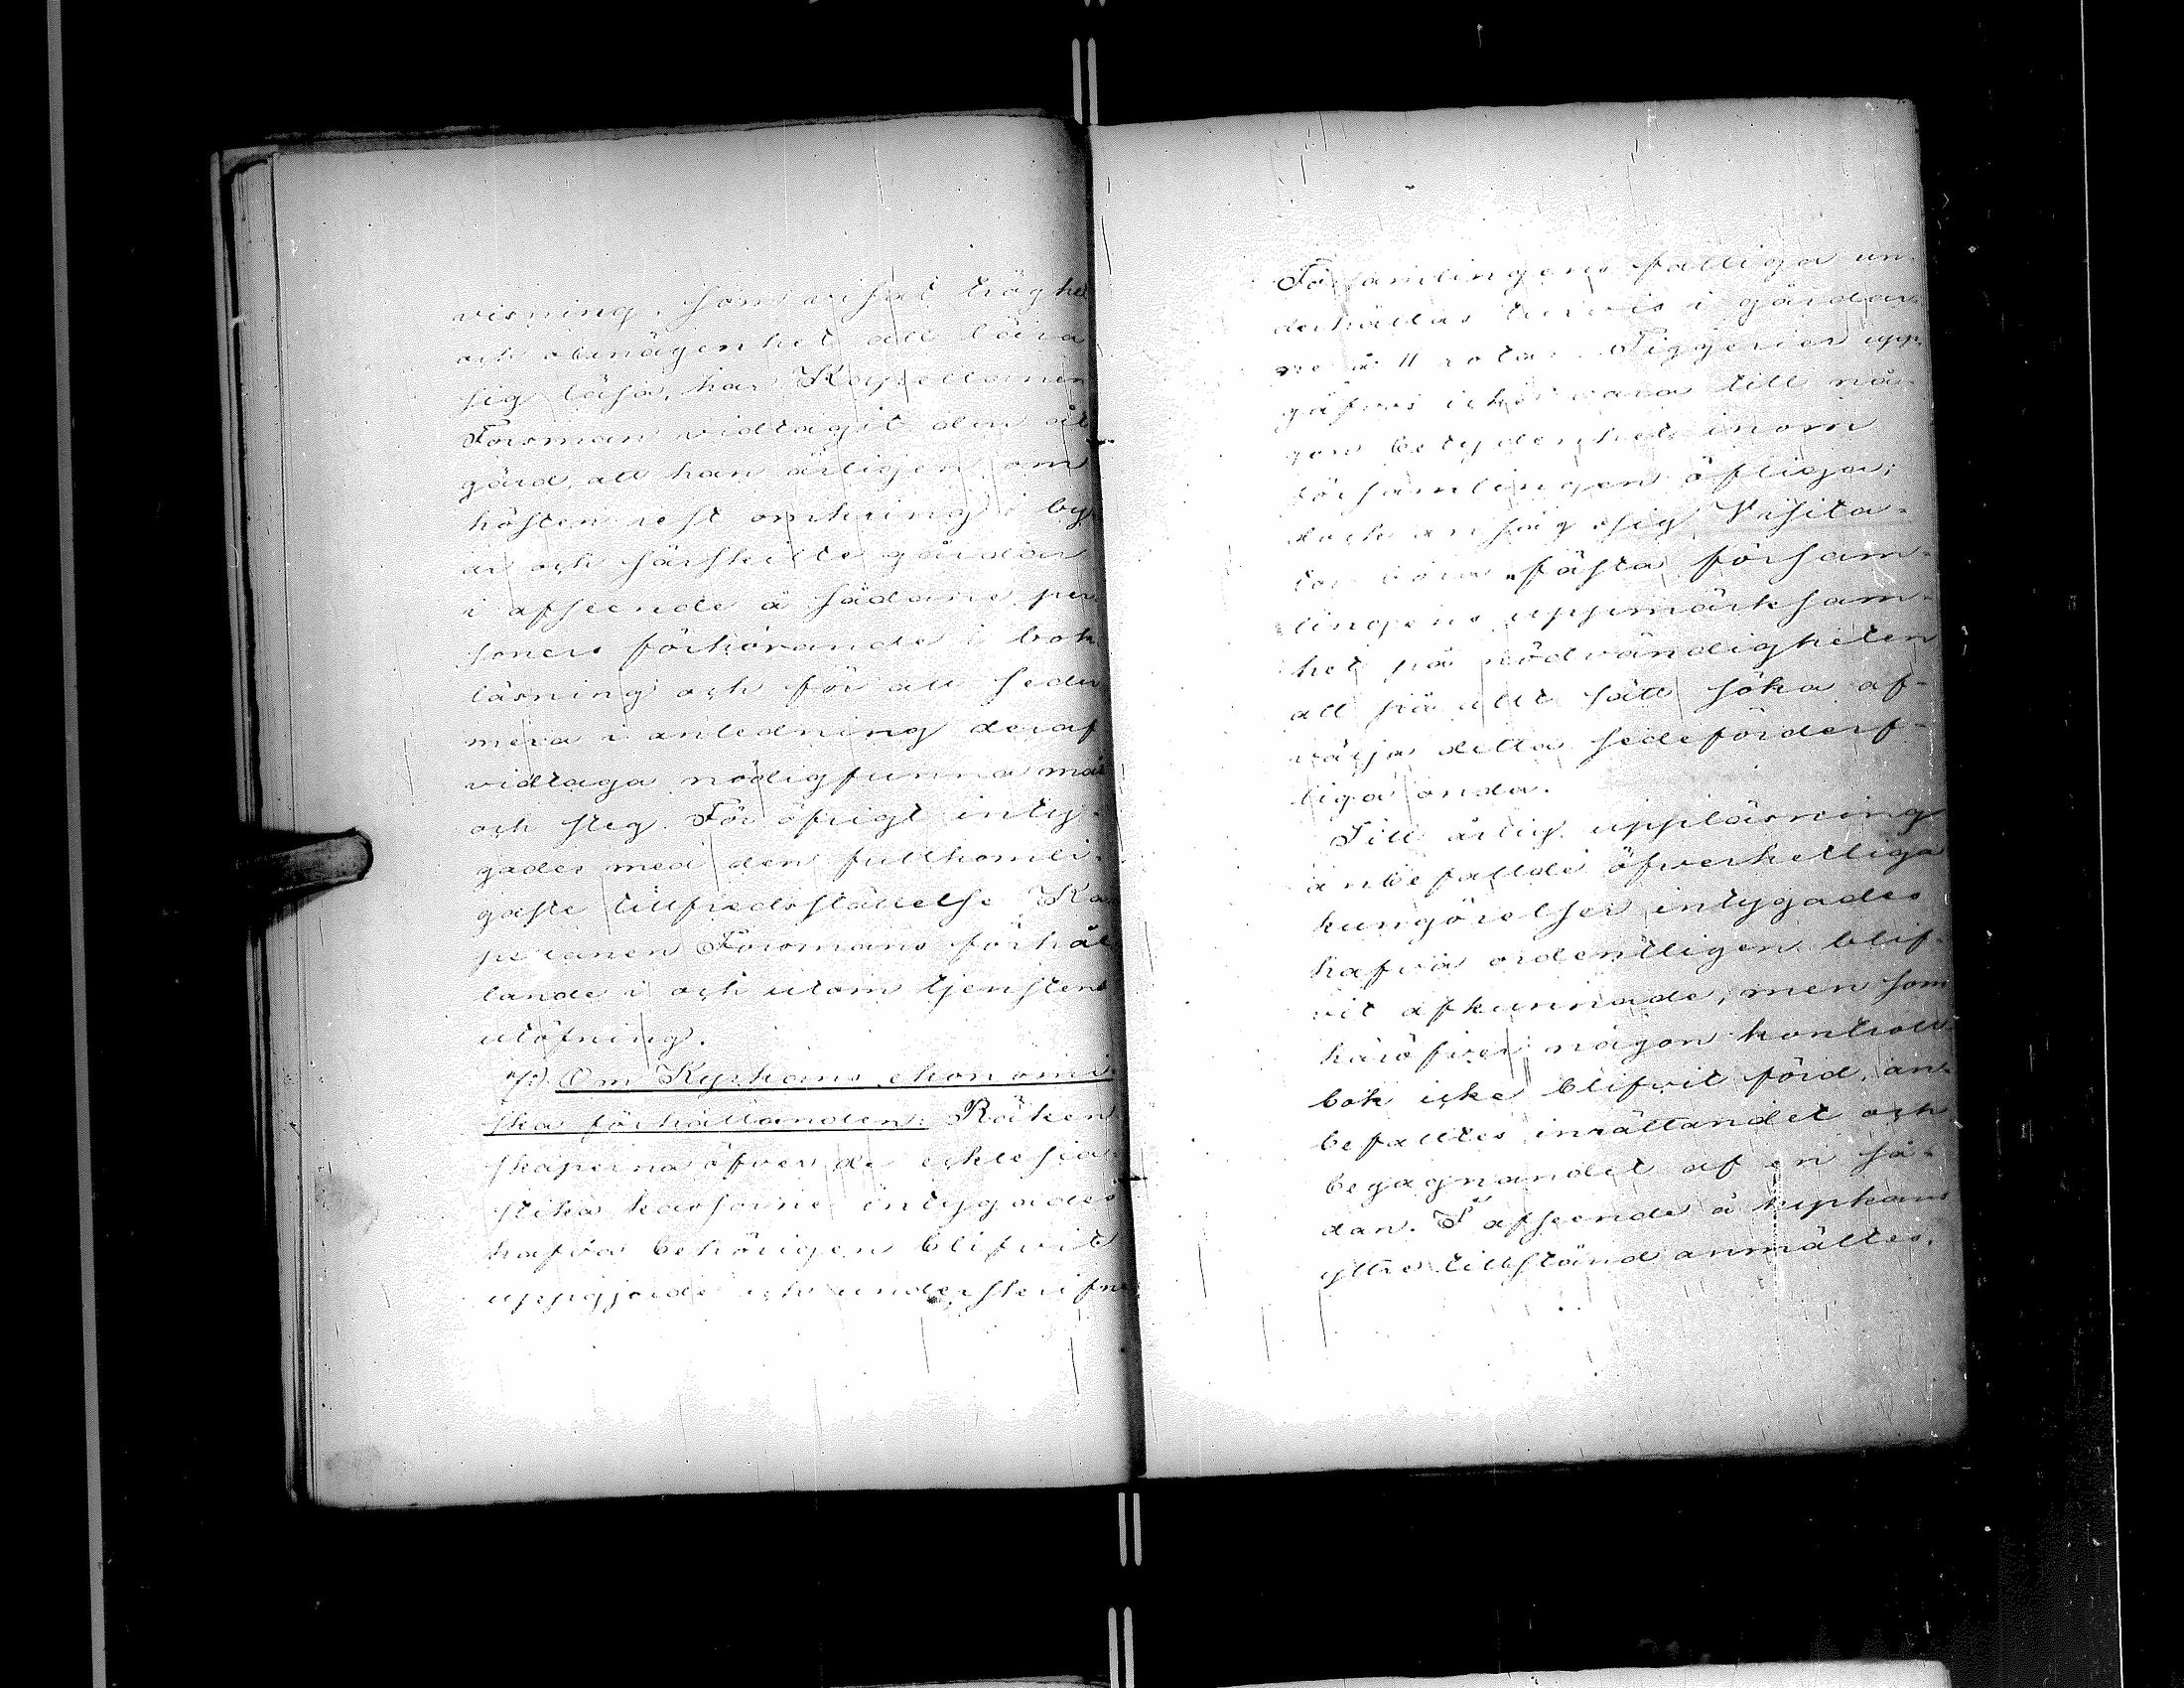 visning, som visat tröghet
och obenägenhet att lära
sig läsa, har Kapellanen
Forsman vidtagit den åt
gärd, att han årligen om
hösten rest omkring i by
ar och särskilte gårdar
i afseende å sådane per
soners förhörande i bok
läsning och för att seder
mera i anledning deraf
vidtaga nödigfunna mått
och steg. För öfrigt inty-
gades med den fullkomli-
gaste tillfredsställelse Ka
pellanen Forsmans förhål
lande i och utom tjenstens
utöfning.
7/: Om Kyrkans ekonomi-
ska förhållanden: Räken
skaperna öfver de ecklesia-
stika kassorne intygades
hafva behörigen blifvit
uppgjorde och underskrifne
Församlingens fattiga un-
derhållas turvis i gårdar-
ne i 11 rotar. Tiggerier upp-
gåfvos icke vara till nå-
gon betydenhet inom
församlingen öfliga;
dock ansåg sig Visita-
tor böra fästa försam-
lingens uppmärksam-
het på nödvändigheten
att på allt sätt söka af-
värja detta sedeförderf-
liga onda.
Till årlig uppläsning
anbefallde öfverhetliga
kungörelser intygades
hafva ordentligen blif-
vit afkunnade; men som
häröfver någon kontroll
bok icke blifvit förd, an-
befalltes inrättandet och
begagnandet af en så-
dan. I afseende å kyrkans
yttre tillstånd anmältes,